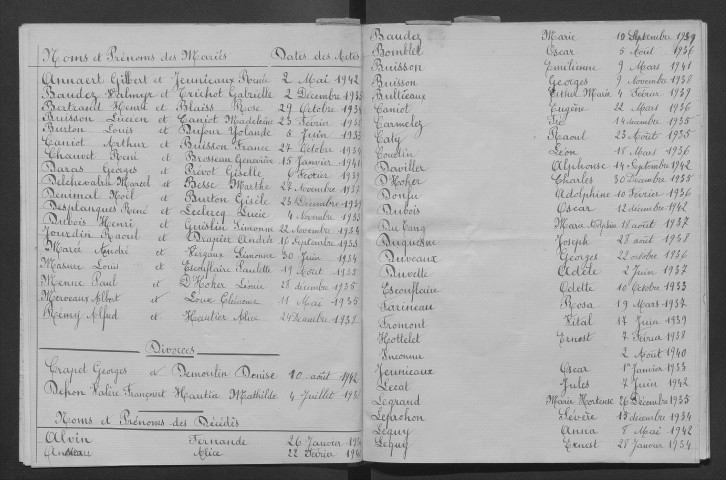 Noms et Prénoms des Mariés Dates des Actes
Annaert Gilbert et Jeunicaux Renée 2 Mai 1942
Baudez Palmyr et Trichot Gabrielle 2 Décembre 1933
Bertrand Henri et Blaiss Rose 29 Octobre 1934
Buisson Lucien et Caniot Madeleine 23 Février
Burton Louis et Dufour Yolande 8 Juin 1933
Caniot Arthur et Buisson France 27 Octobre 1934
Chauvot René et Brosseau Geneviève 15 Janvier 1941
Daras Georges et Prévot Giselle 6 Février 1939
Delchevalrie Marcel et Besse Marthe 27 Novembre 1937
Denimal Noël et Burton Gisèle 23 Décembre 1939
Desplanques René et Leclercq Lucie 4 Novembre 1933
Dubois Henri et Guislin Simonne 22 Novembre 1934
Jourdin Raoul et Drapier Andrée 16 Septembre 1933
Marée André et Vergaux Simonne 30 Juin 1934
Masure Louis et Escouflaire Paulette 19 Août 1933
Menne Paul et D'Hoker Léonie 28 décembre 1935
Merveaux Albert et Loue Eléonore 11 Mai 1935
Remy Alfred et Hautier Alice 24 Décembre 1938
Divorcés
Trapet Georges et Demoulin Denise 10 août 1942
Dehon Valère François et Hautia Mathilde 4 Juillet
Noms et Prénoms des Décédés
Alvin Fernande 26 Janvier
Alice 22 Février
Baudez Marie 10 Septembre 1939
Bomblet Oscar 5 Août 1936
Buisson Emilienne 9 Mars 1941
Buisson Georges 9 Novembre 1938
Bullieaux Esther Maria 4 Février 1939
Caniot Eugène 22 Mars 1936
Carmelez 14 décembre 1935
Caty Raoul 23 Août 1935
Coudin Léon 18 Mars 1936
Daviller Alphonse 14 Septembre 1942
D'Hoker Charles 30 Décembre 1935
Donfu Adolphine 10 Février 1936
Dubois Oscar 12 décembre 1942
Marie 18 août 1937
Duquesne Joseph 28 août 1938
Duveaux Georges 22 octobre 1936
Duvelle Adèle 2 Juin 1937
Escouflaire Odette 10 Octobre 1933
Farineau Rosa 19 Mars 1937
Fromont Vital 17 Juin 1939
Hottelet Ernest 7 Février 1938
Inconnu 2 Août 1940
Jeunicaux Oscar 1er Janvier 1933
Lecat Jules 7 Juin 1942
Legrand Marie Hortense 26 Décembre 1935
Lepachon Sévère 13 décembre 1934
Lequy Anna 8 Mai 1942
Lequy Ernest 28 Janvier 1934